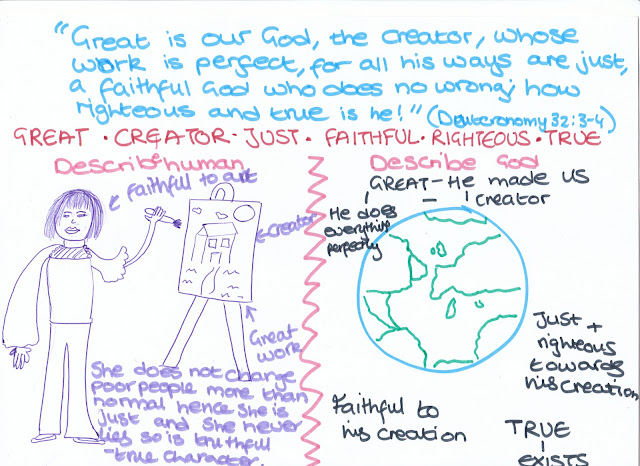 "Great is our God, the creator, whose
work is perfect, for all his ways are just,
a faithful God who does no wrong; how
righteous and true is he!" (Deuteronomy 32:3-4)
GREAT · CREATOR · JUST · FAITHFUL · RIGHTEOUS · TRUE
Describe human
Faithful to art
Creator
Great
work
She does not change
poor people more than
normal hence she is
just and she never
lies so is truthful
- true character.
Describe God
GREAT - He made us
creator
He does
everything
perfectly
Just +
righteous
towards
his creation
Faithful to
his creation
TRUE
EXISTS